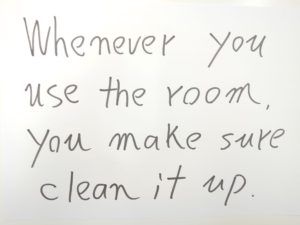 Whenever you
use the room,
you make sure
clean it up.